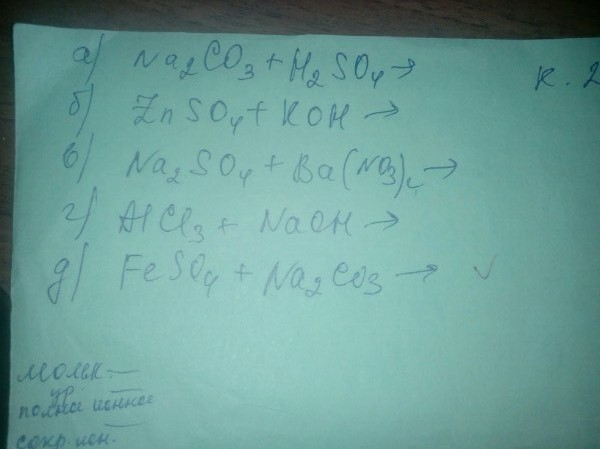 а) Na2CO3 + H2SO4 →
К. 2
б) ZnSO4 + KOH →
в) Na2SO4 + Ba(NO3)2 →
г) AlCl3 + NaOH →
д) FeSO4 + Na2CO3 → ✓
молек. —
ур.
полное ионное
сокр. ион.